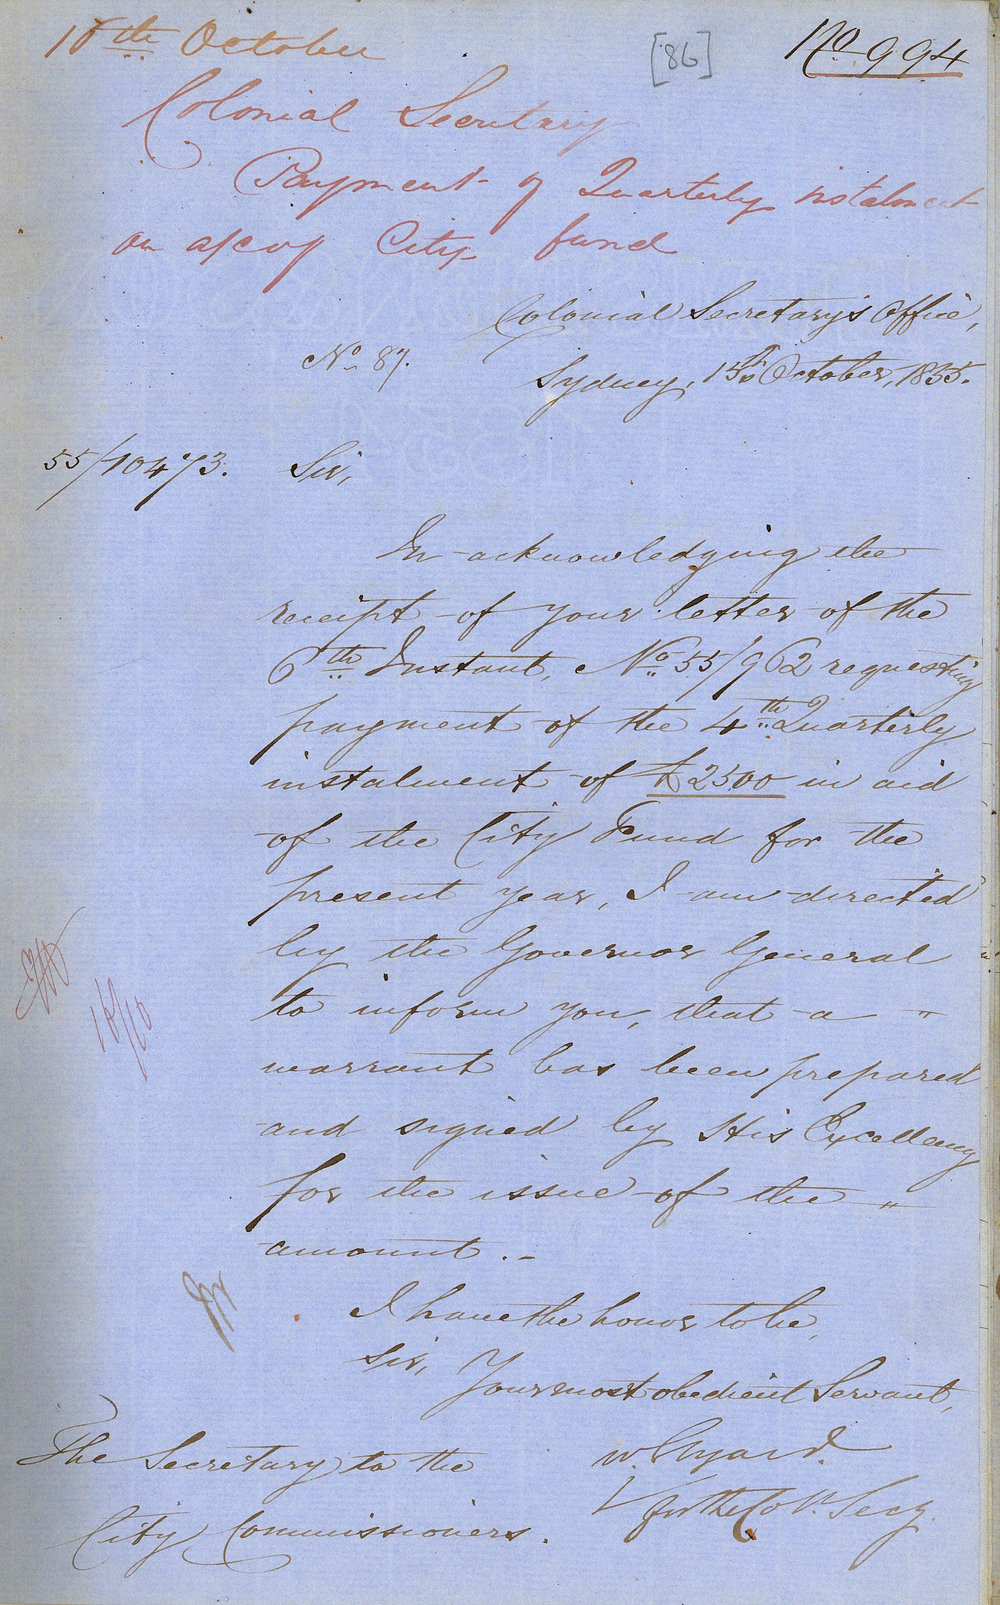 18th October
[86]
No 994
Colonial Secretary
Payment of Quarterly instalment
on a/c of City fund
Colonial Secretary's Office,
No 87.
Sydney, 15th October, 1855.
55/10473.
Sir,
In acknowledging the
receipt of your letter of the
6th Instant, No 55/962 requesting
payment of the 4th Quarterly
instalment of £2500 in aid
of the City Fund for the
present year, I am directed
by the Governor General
to inform you, that a "
warrant has been prepared
and signed by His Excellency
for the issue of the "
amount. -
I have the honor to be,
Sir,
Your most obedient Servant,
W. Elyard.
for the Col. Secy.
The Secretary to the
City Commissioners.